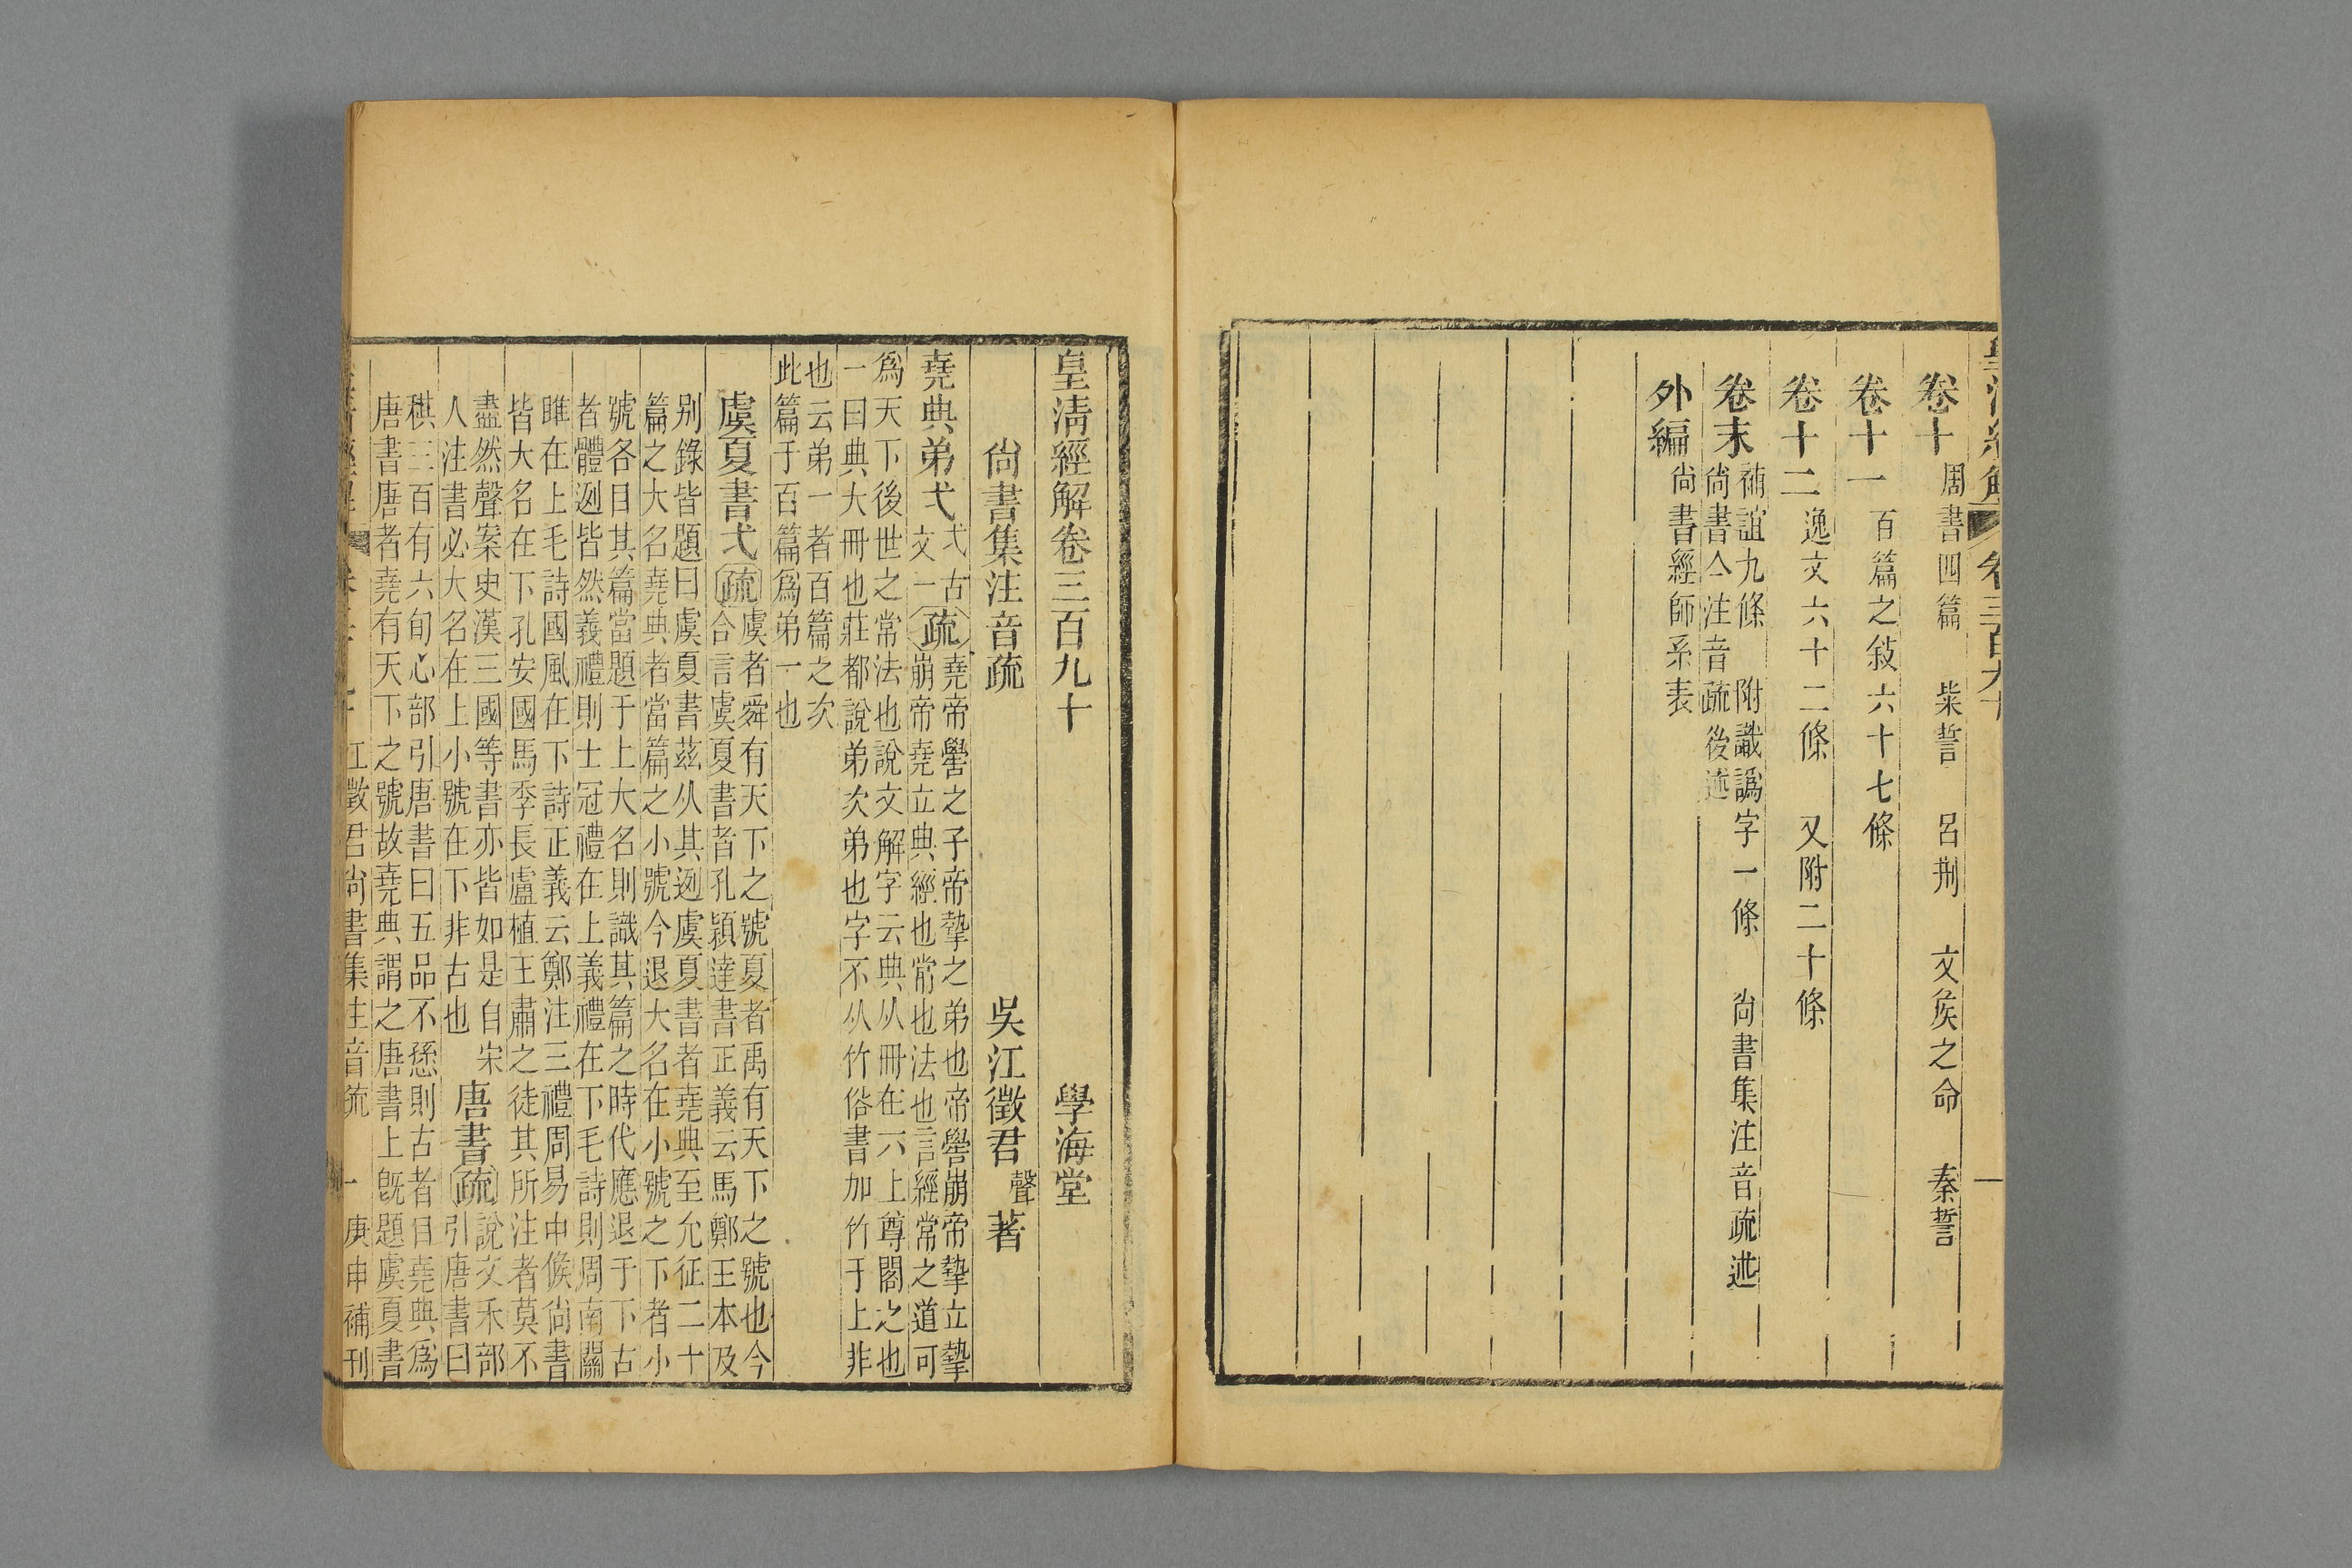 皇清經解 卷三百九十 一
卷十 周書四篇 粊誓 呂荆 文矦之命 秦誓
卷十一 百篇之敍六十七條
卷十二 逸文六十二條 又附二十條
卷末 補誼九條 附識譌字一條 尙書集注音疏述
尙書今注音疏後述
外編 尙書經師系表
皇淸經解卷三百九十 學海堂
尙書集注音疏 吳江徵君聲著
堯典弟弌 弌古
文一 疏 堯帝嚳之子帝摯之弟也帝嚳崩帝摯立摯
崩帝堯立典經也常也法也言經常之道可
爲天下後世之常法也說文解字云典从冊在六上尊閣之也
一曰典大冊也莊都說弟次弟也字不从竹俗書加竹于上非
也云弟一者百篇之次
此篇于百篇爲弟一也
虞夏書弌 疏 虞者舜有天下之號夏者禹有天下之號也今
合言虞夏書者孔穎達書正義云馬鄭王本及
别錄皆題曰虞夏書茲从其迾虞夏書者堯典至允征二十
篇之大名堯典者當篇之小號今退大名在小號之下者小
號各目其篇當題于上大名則識其篇之時代應退于下古
者體迾皆然義禮則士冠禮在上義禮在下毛詩則周南關
雎在上毛詩國風在下詩正義云鄭注三禮周易中候尙書
皆大名在下孔安國馬季長盧植王肅之徒其所注者莫不
盡然聲案史漢三國等書亦皆如是自宋
人注書必大名在上小號在下非古也 唐書 疏 說文禾部
引唐書曰
稘三百有六旬心部引唐書曰五品不愻則古者目堯典爲
唐書唐者堯有天下之號故堯典謂之唐書上旣題虞夏書
江徵君尙書集注音疏 一 庚申補刊